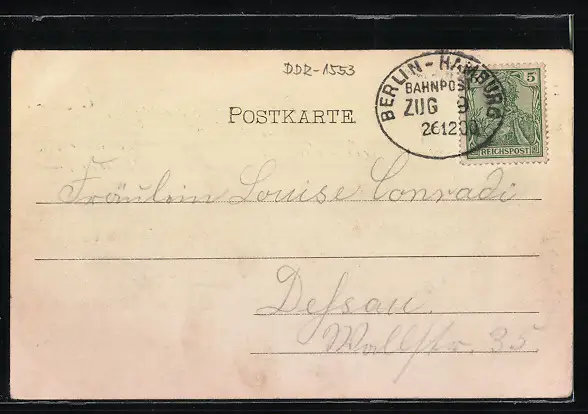 DDR-1553
BERLIN - HAMBURG
BAHNPOST
ZUG 9
26 12 00
5
REICHSPOST
POSTKARTE
Fräulein Louise Conradi
Dessau.
Wallstr. 35.